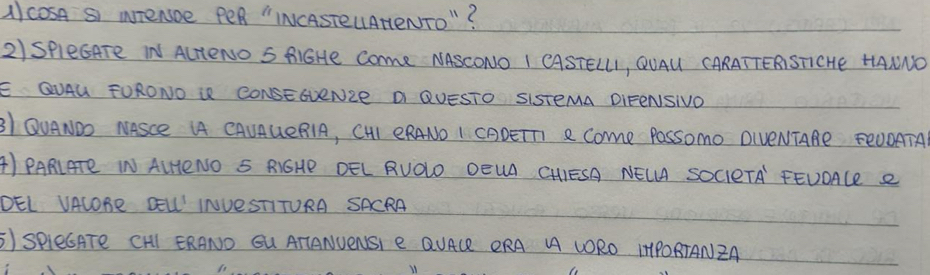 1) COSA SI INTENDE PER "INCASTELLAMENTO"?
2) SPIEGATE IN ALMENO 5 RIGHE COME NASCONO I CASTELLI, QUALI CARATTERISTICHE HANNO
E QUALI FURONO LE CONSEGUENZE DI QUESTO SISTEMA DIFENSIVO
3) QUANDO NASCE LA CAVALLERIA, CHI ERANO I CADETTI E COME POSSOMO DIVENTARE FEUDATA
4) PARLATE IN ALMENO 5 RIGHE DEL RUOLO DELLA CHIESA NELLA SOCIETÀ FEUDALE E
DEL VALORE DELL'INVESTITURA SACRA
5) SPIEGATE CHI ERANO GLI AMANUENSI E QUALE ERA LA LORO IMPORTANZA